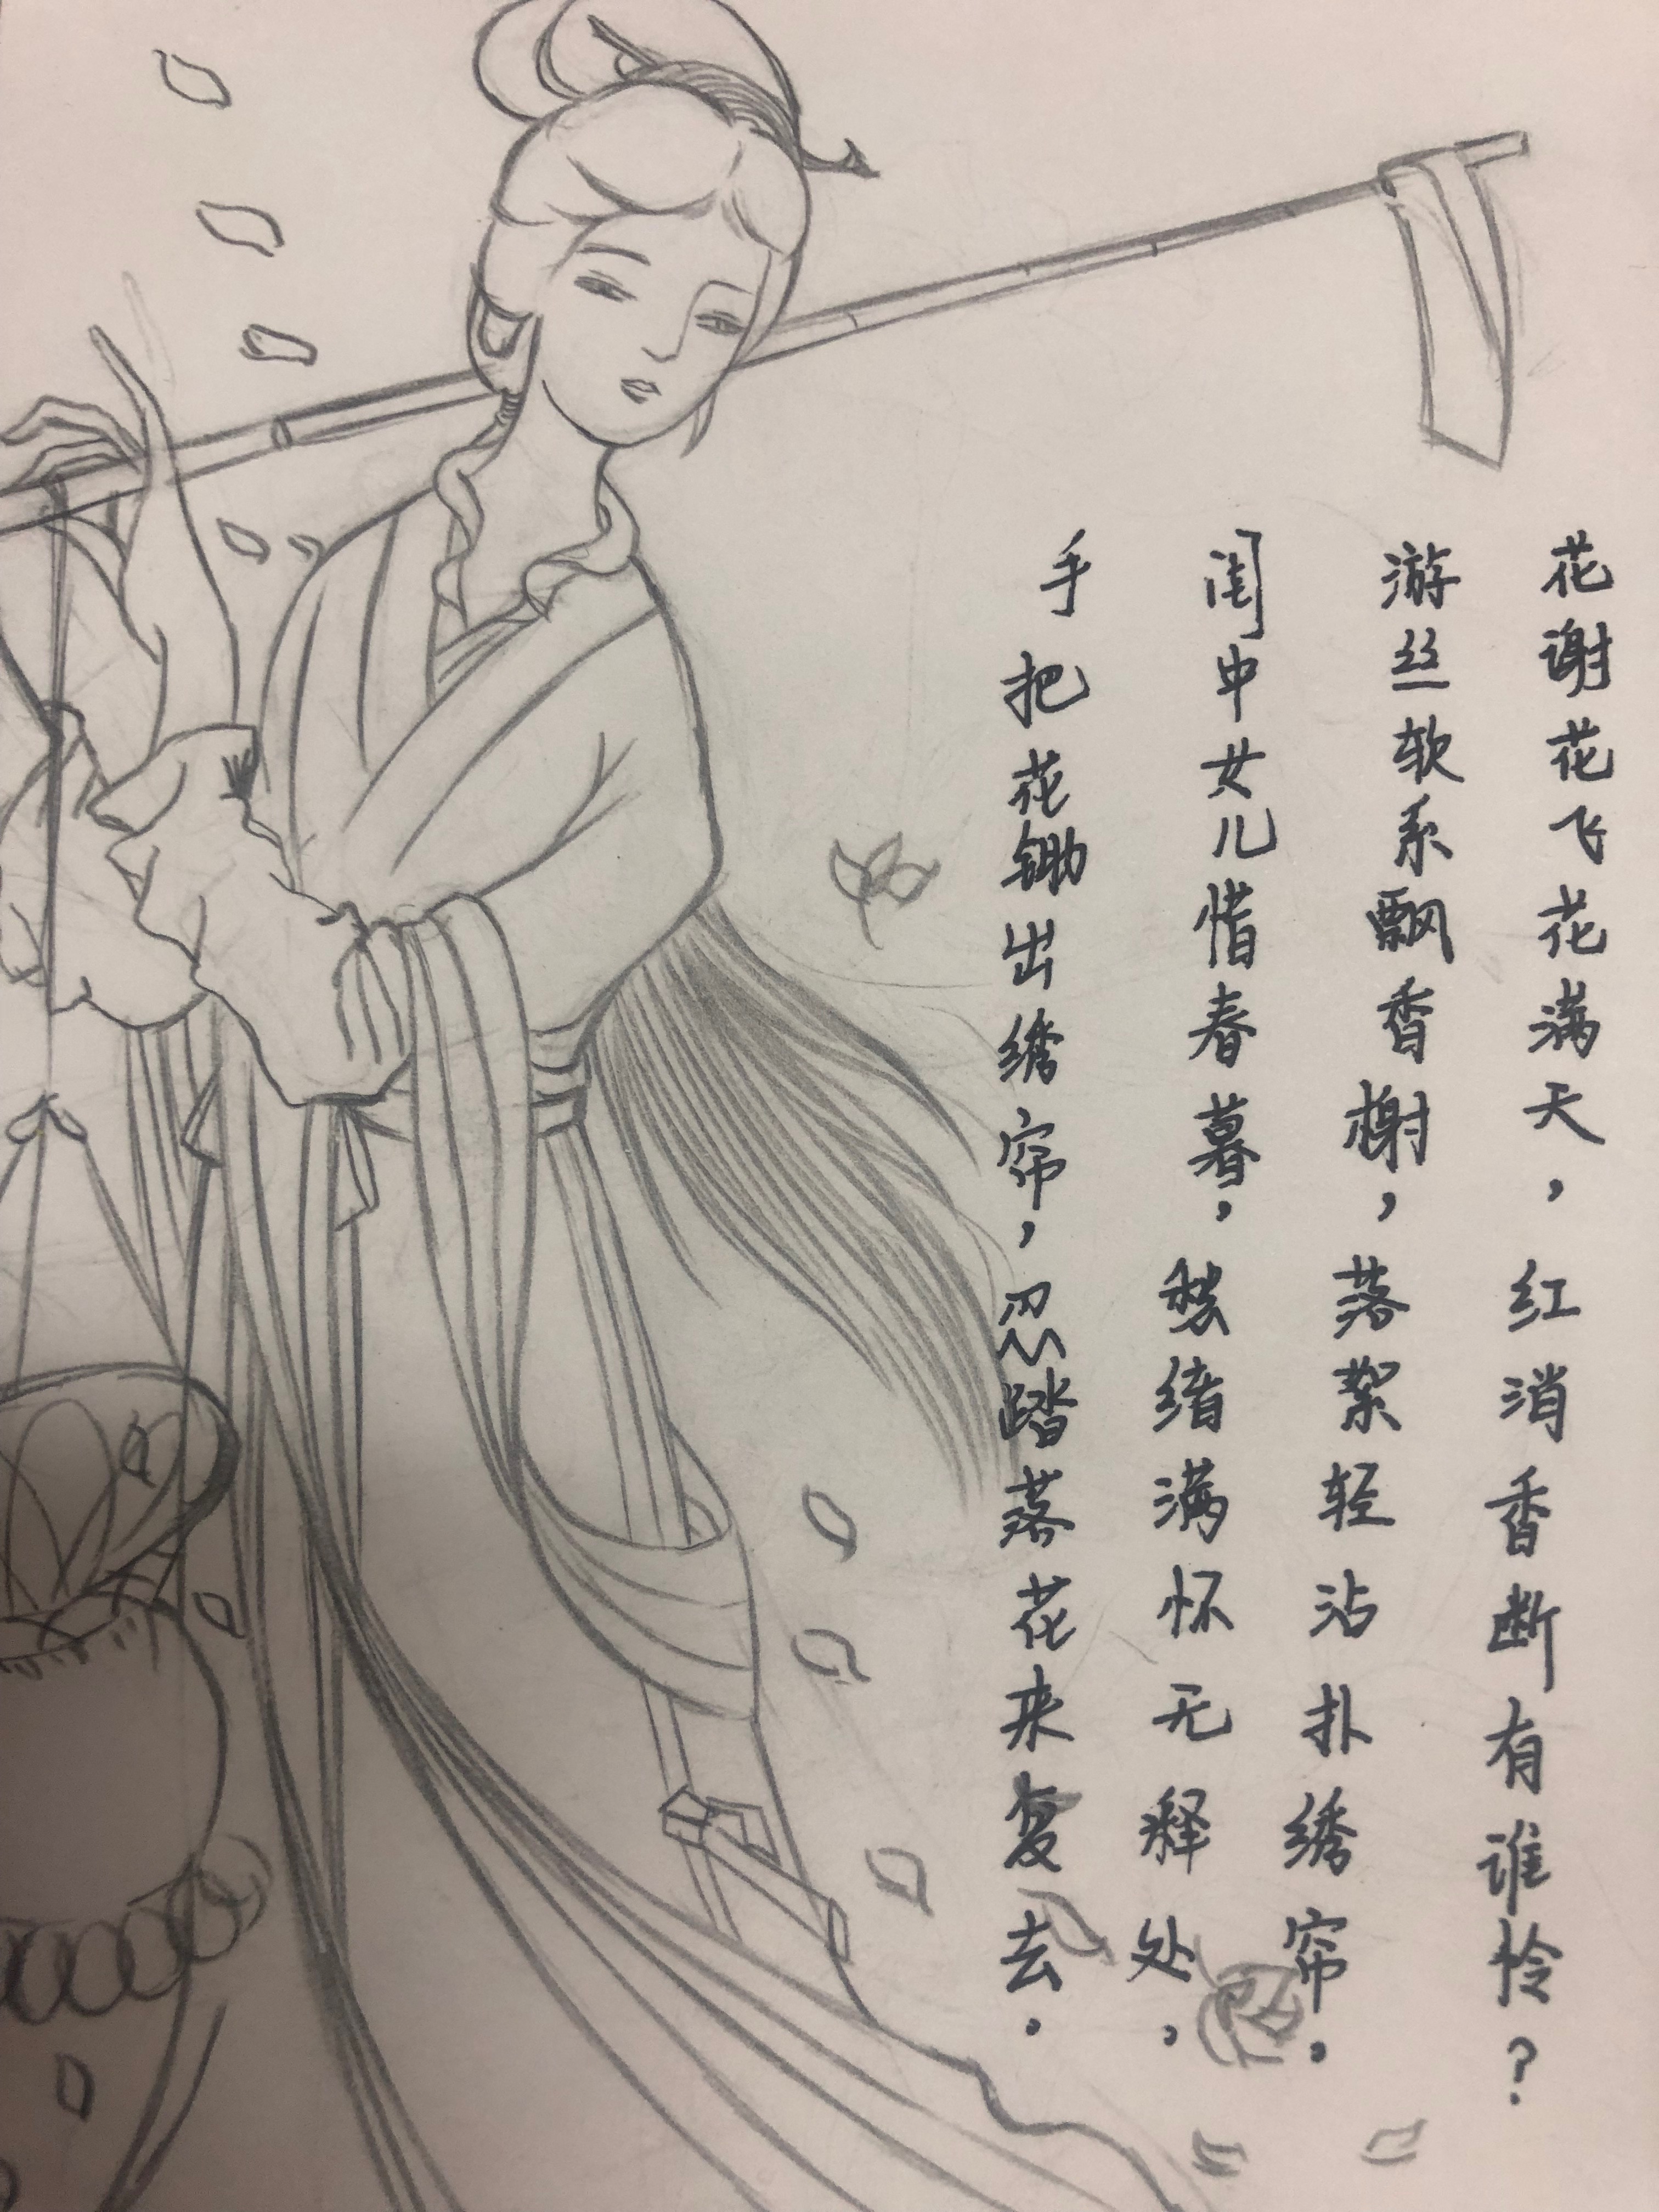 花谢花飞花满天，红消香断有谁怜？
游丝软系飘香榭，落絮轻沾扑绣帘。
闺中女儿惜春暮，愁绪满怀无释处，
手把花锄出绣帘，忍踏落花来复去.